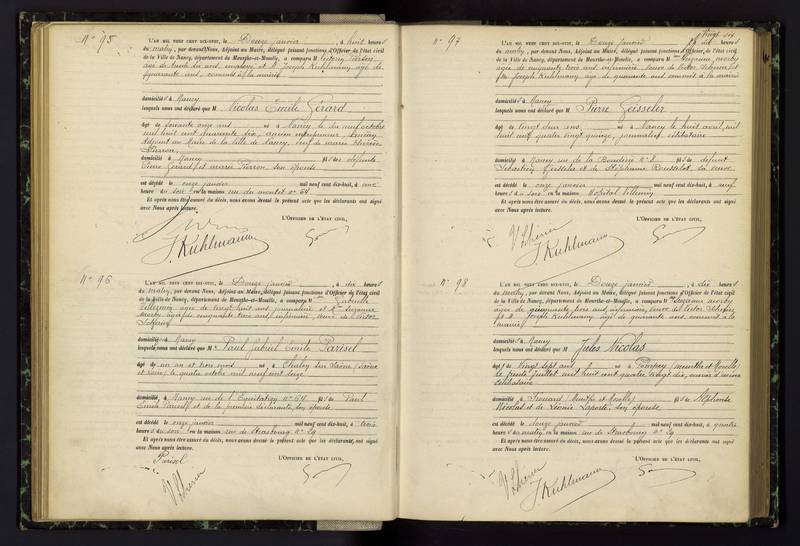 N° 95
L'AN MIL NEUF CENT DIX-HUIT, le Douze janvier, à huit heures
du matin, par devant Nous, Adjoint au Maire, délégué faisant fonctions d'Officier de l'état civil
de la Ville de Nancy, département de Meurthe-et-Moselle, a comparu M
âgé de trente six ans, employé et M Joseph Kuhlmann, âgé de
quarante ans, commis à la mairie
domiciliés à Nancy
lesquels nous ont déclaré que M Nicolas Emile Gérard
âgé de soixante onze ans, né à Nancy le dix neuf octobre
mil huit cent quarante six, ancien entrepreneur, ancien
Adjoint au Maire de la ville de Nancy, veuf de Marie
Pierron
domicilié à Nancy fils de défunts
Pierre Gérard et Marie Pierron, son épouse
est décédé le onze janvier mil neuf cent dix-huit, à une
heure du soir en la maison rue du montet n° 64
Et après nous être assuré du décès, nous avons dressé le présent acte que les déclarants ont signé
avec Nous après lecture.
L'OFFICIER DE L'ÉTAT CIVIL,
J. Kuhlmann
N° 96
L'AN MIL NEUF CENT DIX-HUIT, le Douze janvier, à dix heures
du matin, par devant Nous, Adjoint au Maire, délégué faisant fonctions d'Officier de l'état civil
de la Ville de Nancy, département de Meurthe-et-Moselle, a comparu M Gabrielle
âgée de vingt huit ans, journalière et Me Suzanne
âgée de cinquante trois ans, infirmière, veuve de Victor
domiciliés à Nancy
lesquels nous ont déclaré que M Paul Gabriel Emile Parisel
âgé de un an et trois mois né à Chalon sur Saône (Saône
et Loire) le quatre octobre mil neuf cent seize
domicilié à Nancy rue de l'Equitation n° 64 fils de Paul
Emile Parisel et de la première déclarante, son épouse
est décédé le onze janvier mil neuf cent dix-huit, à trois
heures du soir en la maison rue de Strasbourg n° 29
Et après nous être assuré du décès, nous avons dressé le présent acte que les déclarants ont signé
avec Nous après lecture.
L'OFFICIER DE L'ÉTAT CIVIL,
Parisel
N° 97
L'AN MIL NEUF CENT DIX-HUIT, le Douze janvier, à dix heures
du matin, par devant Nous, Adjoint au Maire, délégué faisant fonctions d'Officier de l'état civil
de la Ville de Nancy, département de Meurthe-et-Moselle, a comparu M Suzanne
âgée de cinquante trois ans, infirmière, veuve de Victor
et M Joseph Kuhlmann âgé de quarante ans commis à la mairie
domiciliés à Nancy
lesquels nous ont déclaré que M Pierre Geisseler
âgé de vingt deux ans, né à Nancy le huit avril mil
huit cent quatre vingt quinze, journalier, célibataire
domicilié à Nancy rue de la N° 8 fils de défunt
Sébastien Geisseler et de Stéphanie Rousselot, sa veuve
est décédé le onze janvier mil neuf cent dix-huit, à neuf
heures du soir en la maison Hôpital Villemin
Et après nous être assuré du décès, nous avons dressé le présent acte que les déclarants ont signé
avec Nous après lecture.
L'OFFICIER DE L'ÉTAT CIVIL,
J. Kuhlmann
N° 98
L'AN MIL NEUF CENT DIX-HUIT, le Douze janvier, à dix heures
du matin, par devant Nous, Adjoint au Maire, délégué faisant fonctions d'Officier de l'état civil
de la Ville de Nancy, département de Meurthe-et-Moselle, a comparu M Suzanne
âgée de cinquante trois ans, infirmière, veuve de Victor
et M Joseph Kuhlmann, âgé de quarante ans, commis à la
mairie
domiciliés à Nancy
lesquels nous ont déclaré que M Jules Nicolas
âgé de vingt sept ans né à Pompey (Meurthe et Moselle)
le trente juillet mil huit cent quatre vingt dix,
célibataire
domicilié à Frouard (Meurthe et Moselle) fils de Alphonse
Nicolas et de Léonie Lapointe, son épouse
est décédé le douze janvier mil neuf cent dix-huit, à quatre
heures du matin en la maison rue de Strasbourg n° 29
Et après nous être assuré du décès, nous avons dressé le présent acte que les déclarants ont signé
avec Nous après lecture.
L'OFFICIER DE L'ÉTAT CIVIL,
J. Kuhlmann